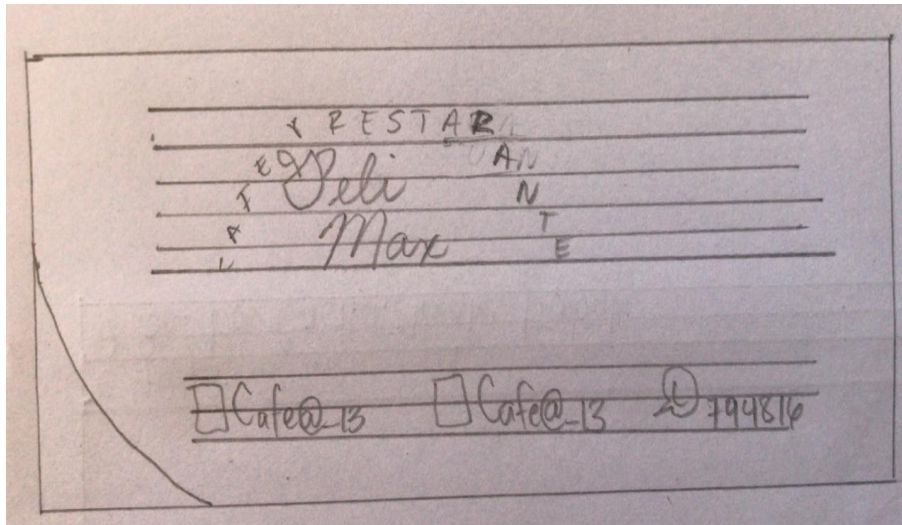 CAFE Y RESTARANTE
Peli
Max
Cafe@_13 Cafe@_13 794816